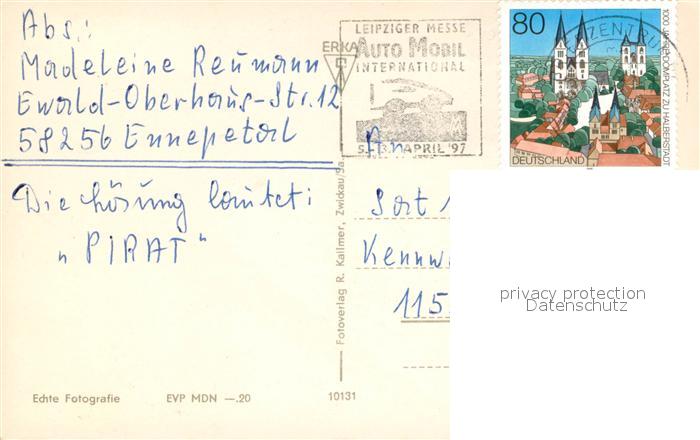 Abs.:
Madeleine Reumann
Ewald-Oberhaus-Str. 12
58256 Ennepetal
Die Lösung lautet:
"PIRAT"
ERKA
LEIPZIGER MESSE
AUTO MOBIL
INTERNATIONAL
APRIL '97
80
1000 JAHRE DOMPLATZ ZU HALBERSTADT
DEUTSCHLAND
ZENTRUM
An
Sat 1
Kennw
115
Fotoverlag R. Kallmer, Zwickau/Sa.
privacy protection
Datenschutz
Echte Fotografie EVP MDN —.20 10131